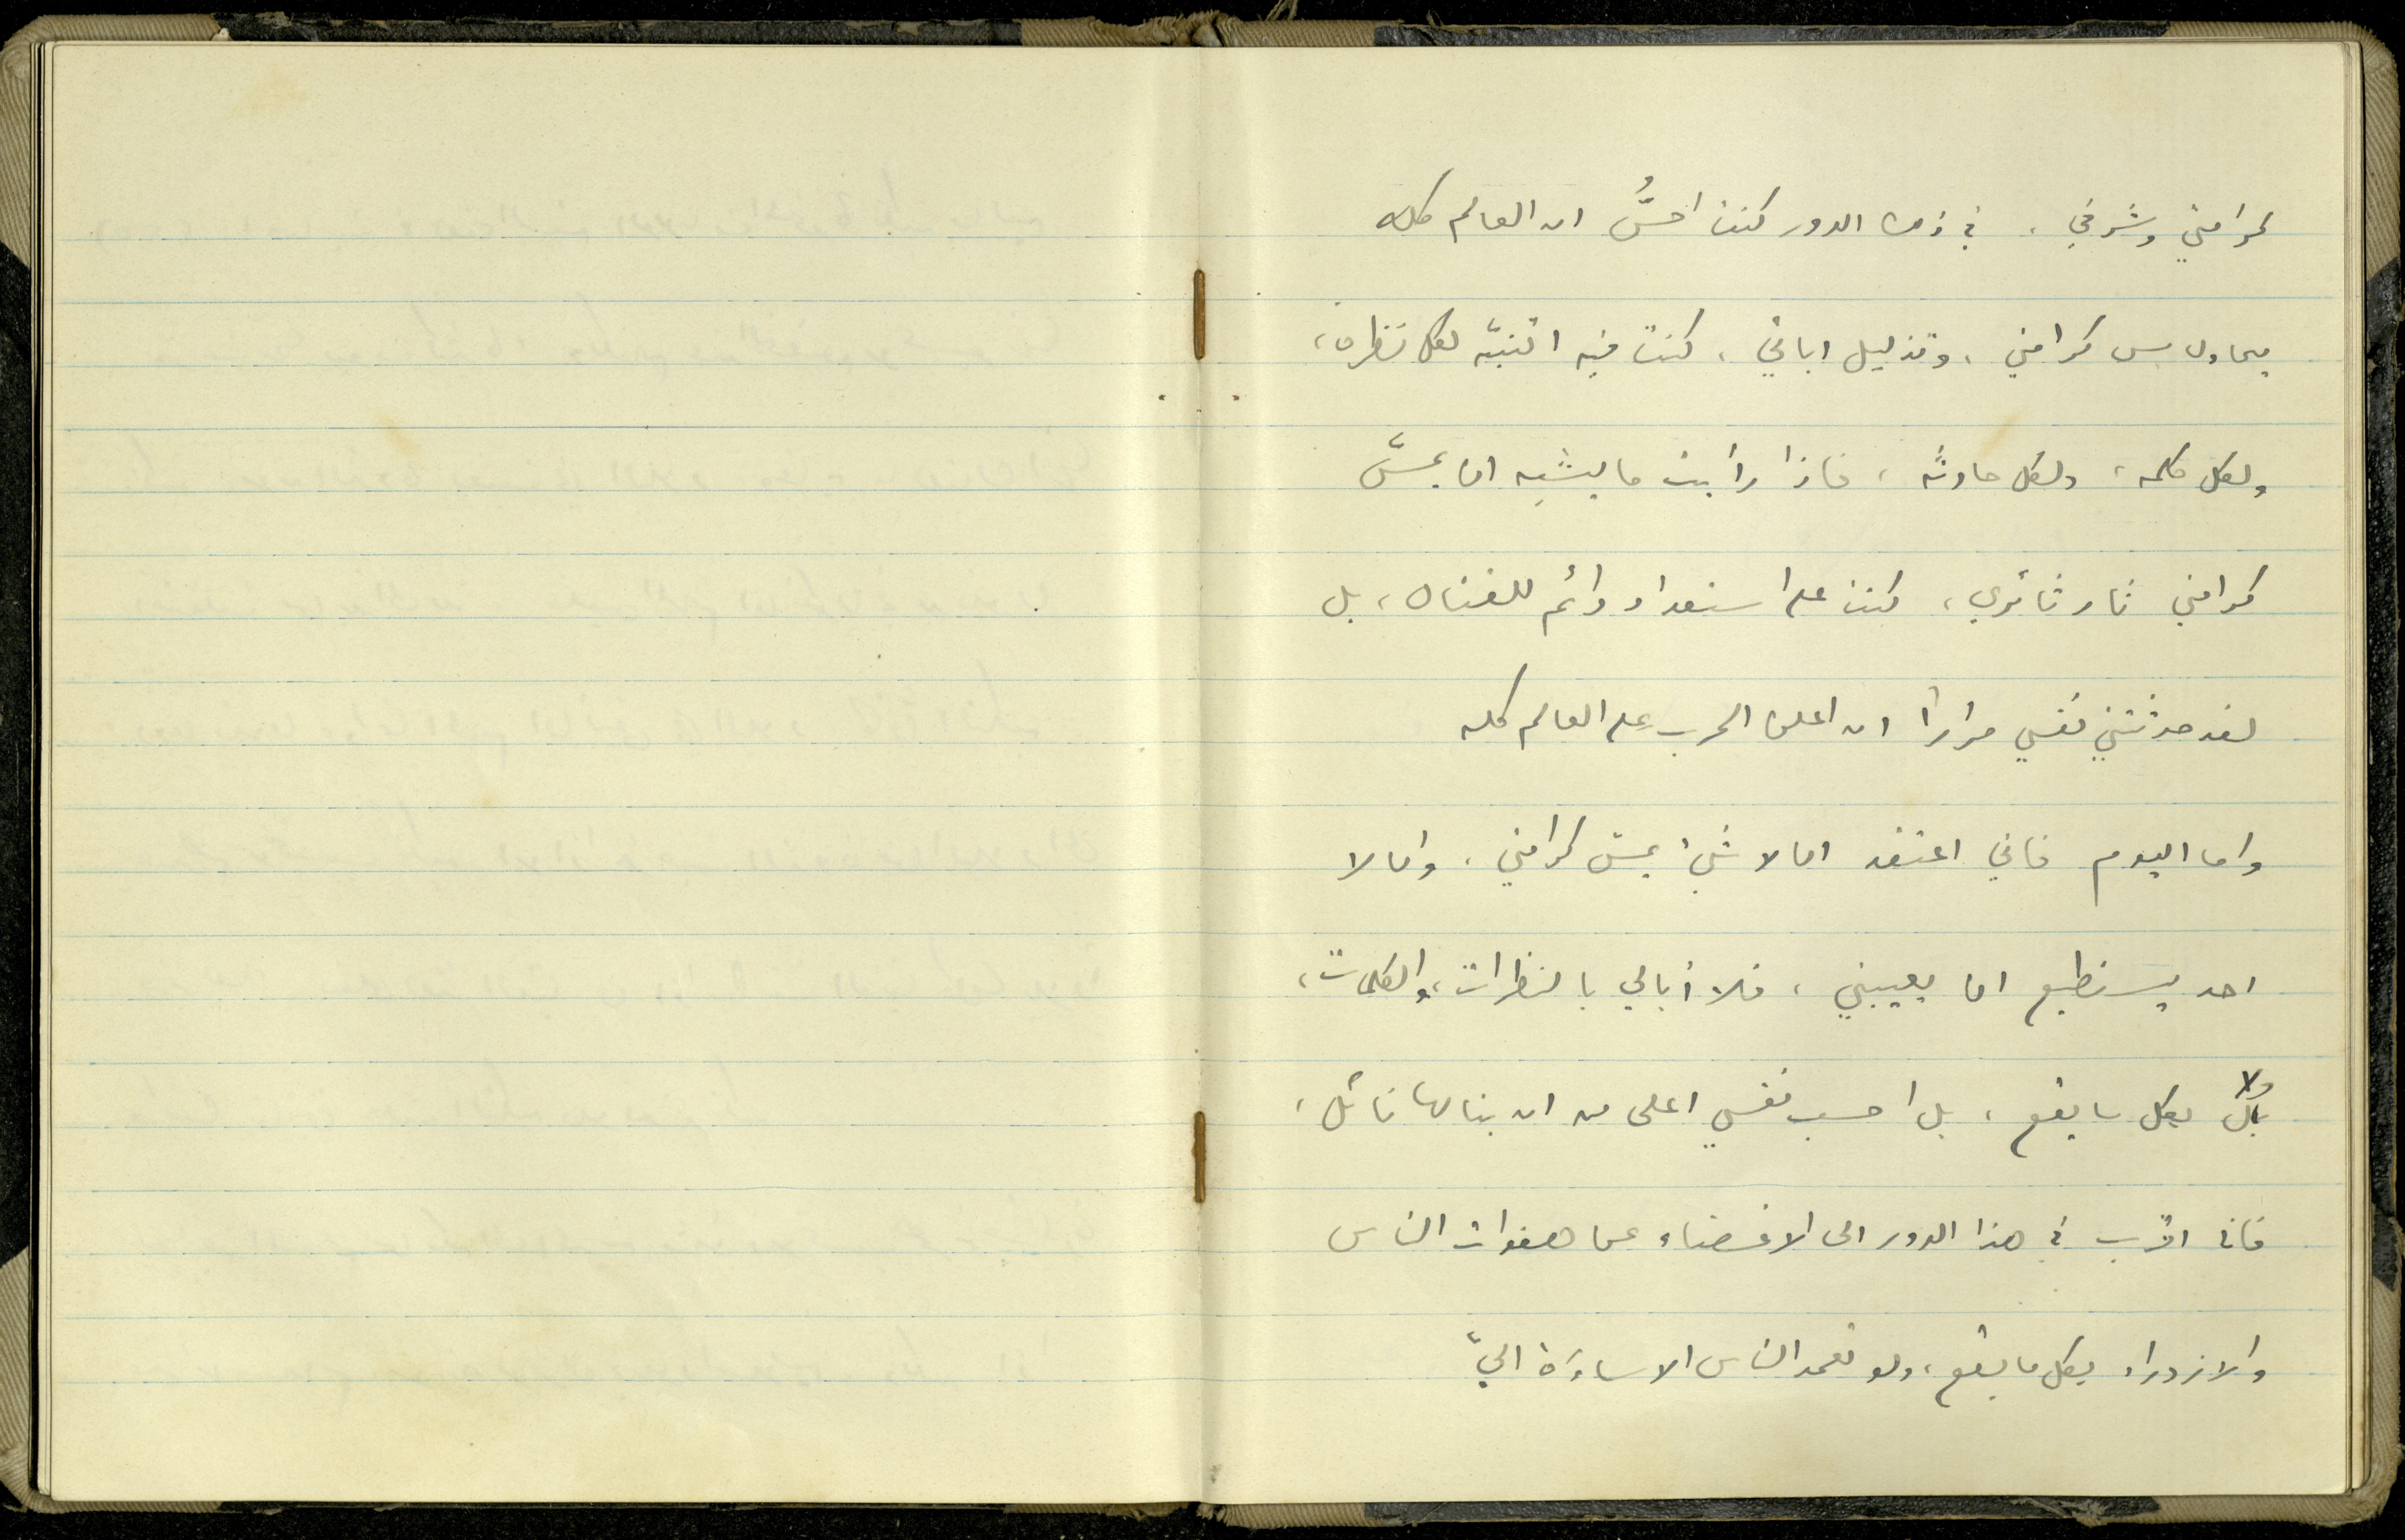 كرامتي وشرفي . في ذلك الدور كنت احسُّ ان العالم كله
يحاول مس كرامتي ، وتذليل ابائي ، كنت فيه اتنبّه لكل نظرة ،
ولكل كلمة ، ولكل حادثة ، فاذا رأيت ما يشبه ان يمسّ
كرامتي ثار ثائري ، كنت على استعداد دائم للقتال ، بل
لقد حدثتني نفسي مراراً ان اعلن الحرب على العالم كله
واما اليوم فاني اعتقد ان لا شيءَ يمسّ كرامتي ، وان لا
احد يستطيع ان يعيبني ، فلا أبالي بالنظرات ، والكلمات ،
ولا بكل ما يقع ، بل احسب نفسي اعلى من ان ينالها نائل ،
فانا اقرب في هذا الدور الى الاغضاء عن هفوات الناس
والازدراء بكل ما يقع ، ولو تعمد الناس الاساءَة اليّ